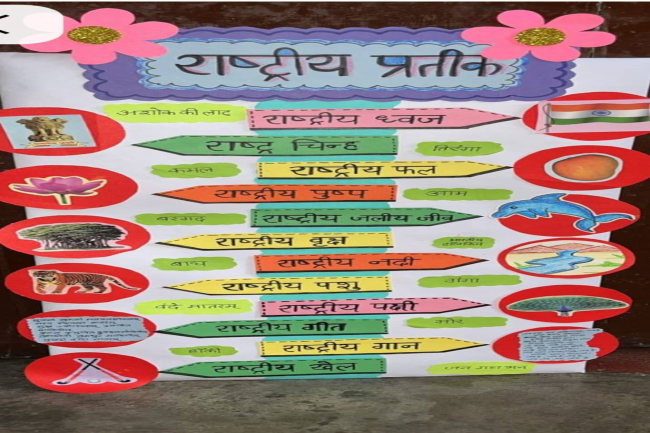 राष्ट्रीय प्रतीक
अशोक की लाट
राष्ट्रीय ध्वज
राष्ट्र चिन्ह
तिरंगा
कमल
राष्ट्रीय फल
राष्ट्रीय पुष्प
आम
बरगद
राष्ट्रीय जलीय जीव
राष्ट्रीय वृक्ष
बाघ
राष्ट्रीय नदी
राष्ट्रीय पशु
गंगा
वंदे मातरम्
राष्ट्रीय पक्षी
राष्ट्रीय गीत
मोर
हॉकी
राष्ट्रीय गान
राष्ट्रीय खेल
जन गण मन